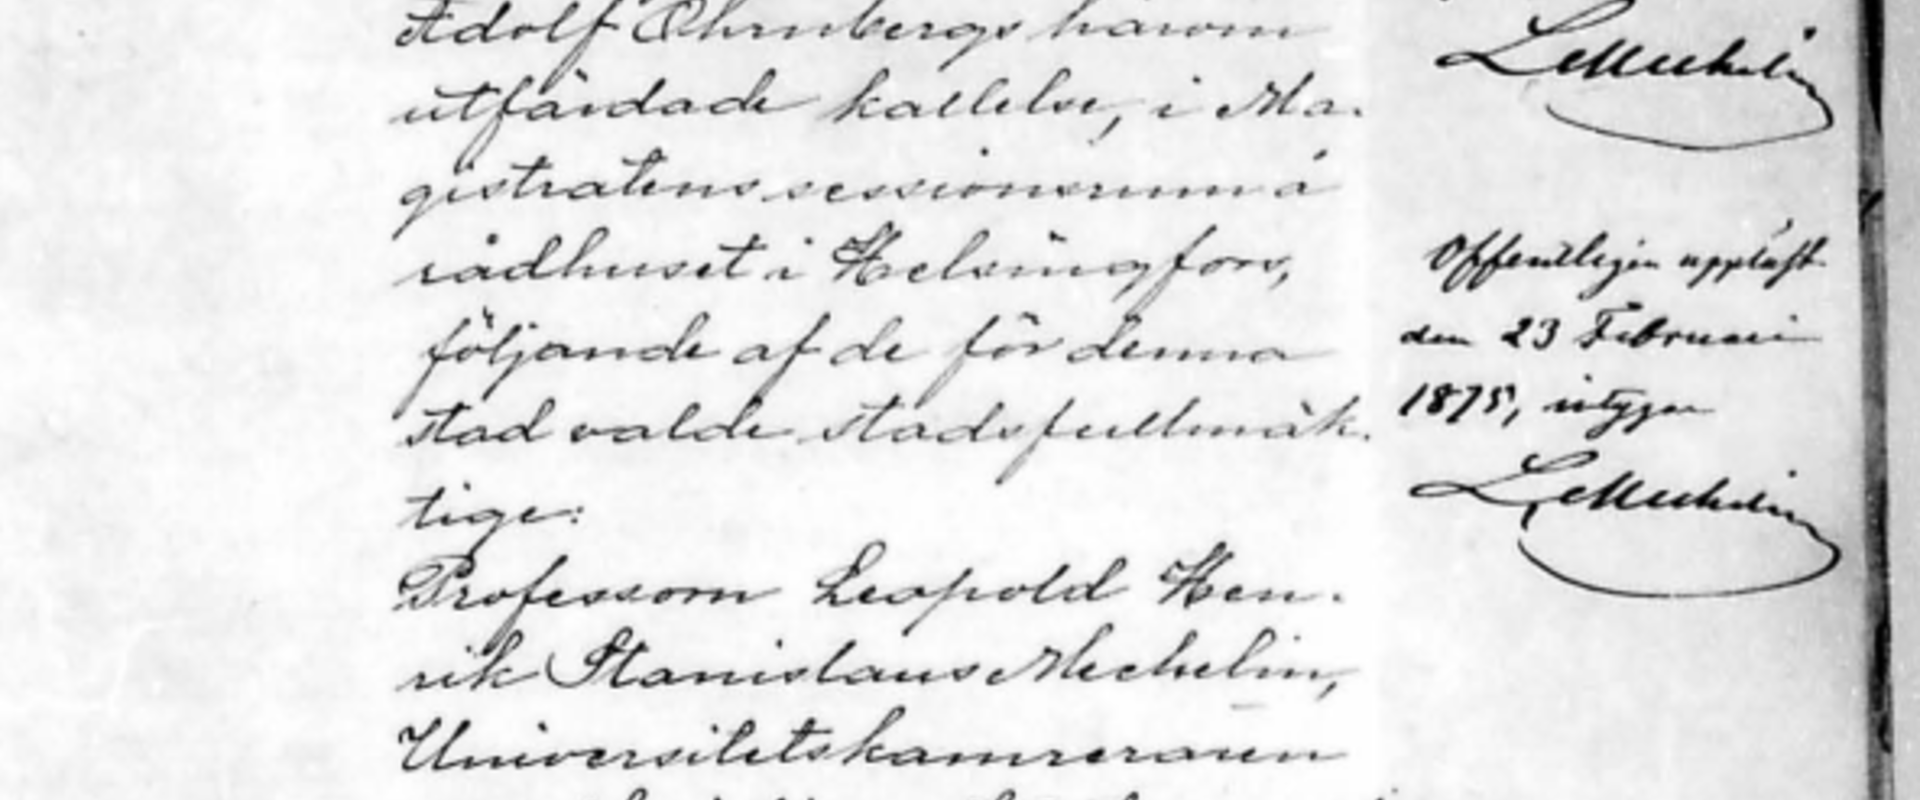 Adolf Öhrnbergs härom
utfärdade kallelse, i Ma-
gistratens sessionsrum å
rådhuset i Helsingfors,
följande af de för denna
stad valde stadsfullmäk-
tige:
Professorn Leopold Hen-
rik Stanislaus Mechelin,
Universitetskamreraren
L Mechelin
Offentligen uppläst
den 23 Februari
1875, intygar
L Mechelin